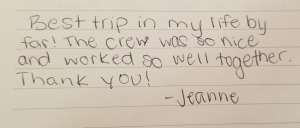 Best trip in my life by
far! The crew was so nice
and worked so well together.
Thank you!
-Jeanne